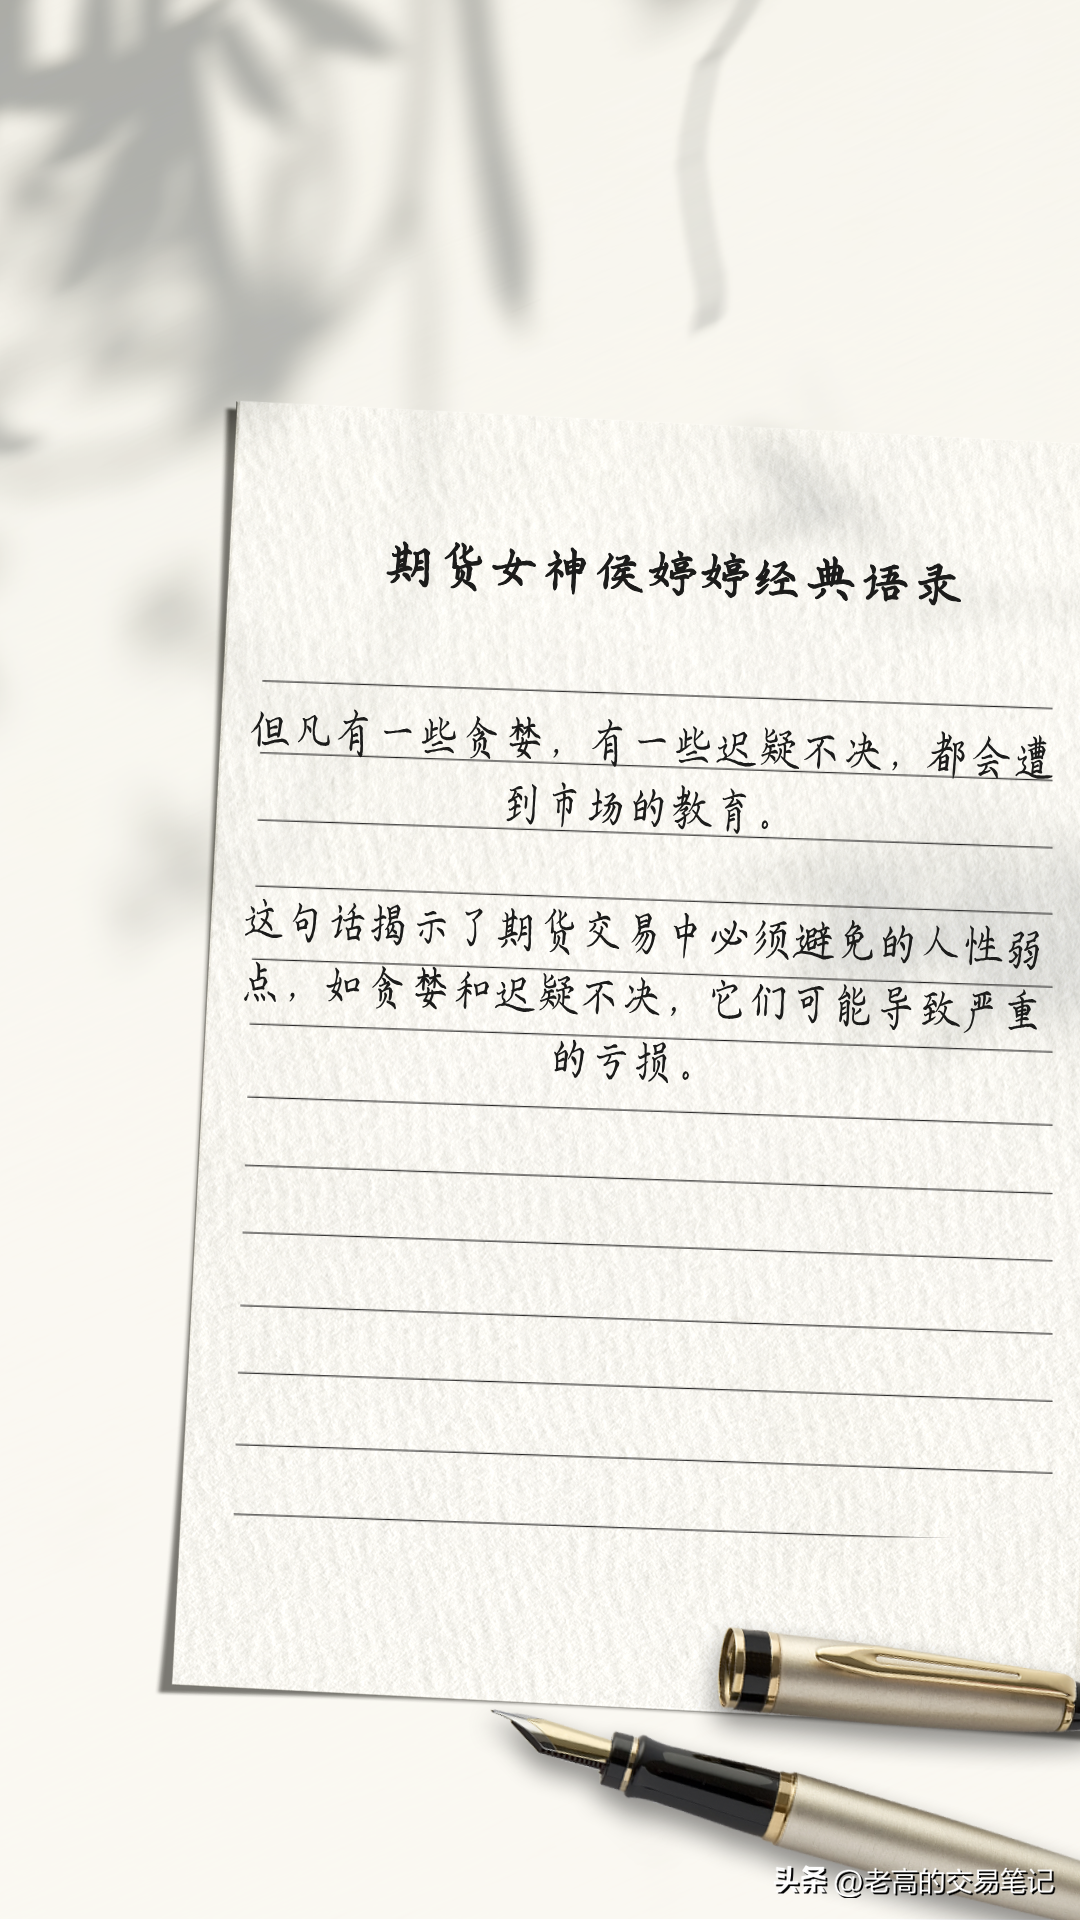 期货女神侯婷婷经典语录
但凡有一些贪婪，有一些迟疑不决，都会遭
到市场的教育。
这句话揭示了期货交易中必须避免的人性弱
点，如贪婪和迟疑不决，它们可能导致严重
的亏损。
头条 @老高的交易笔记